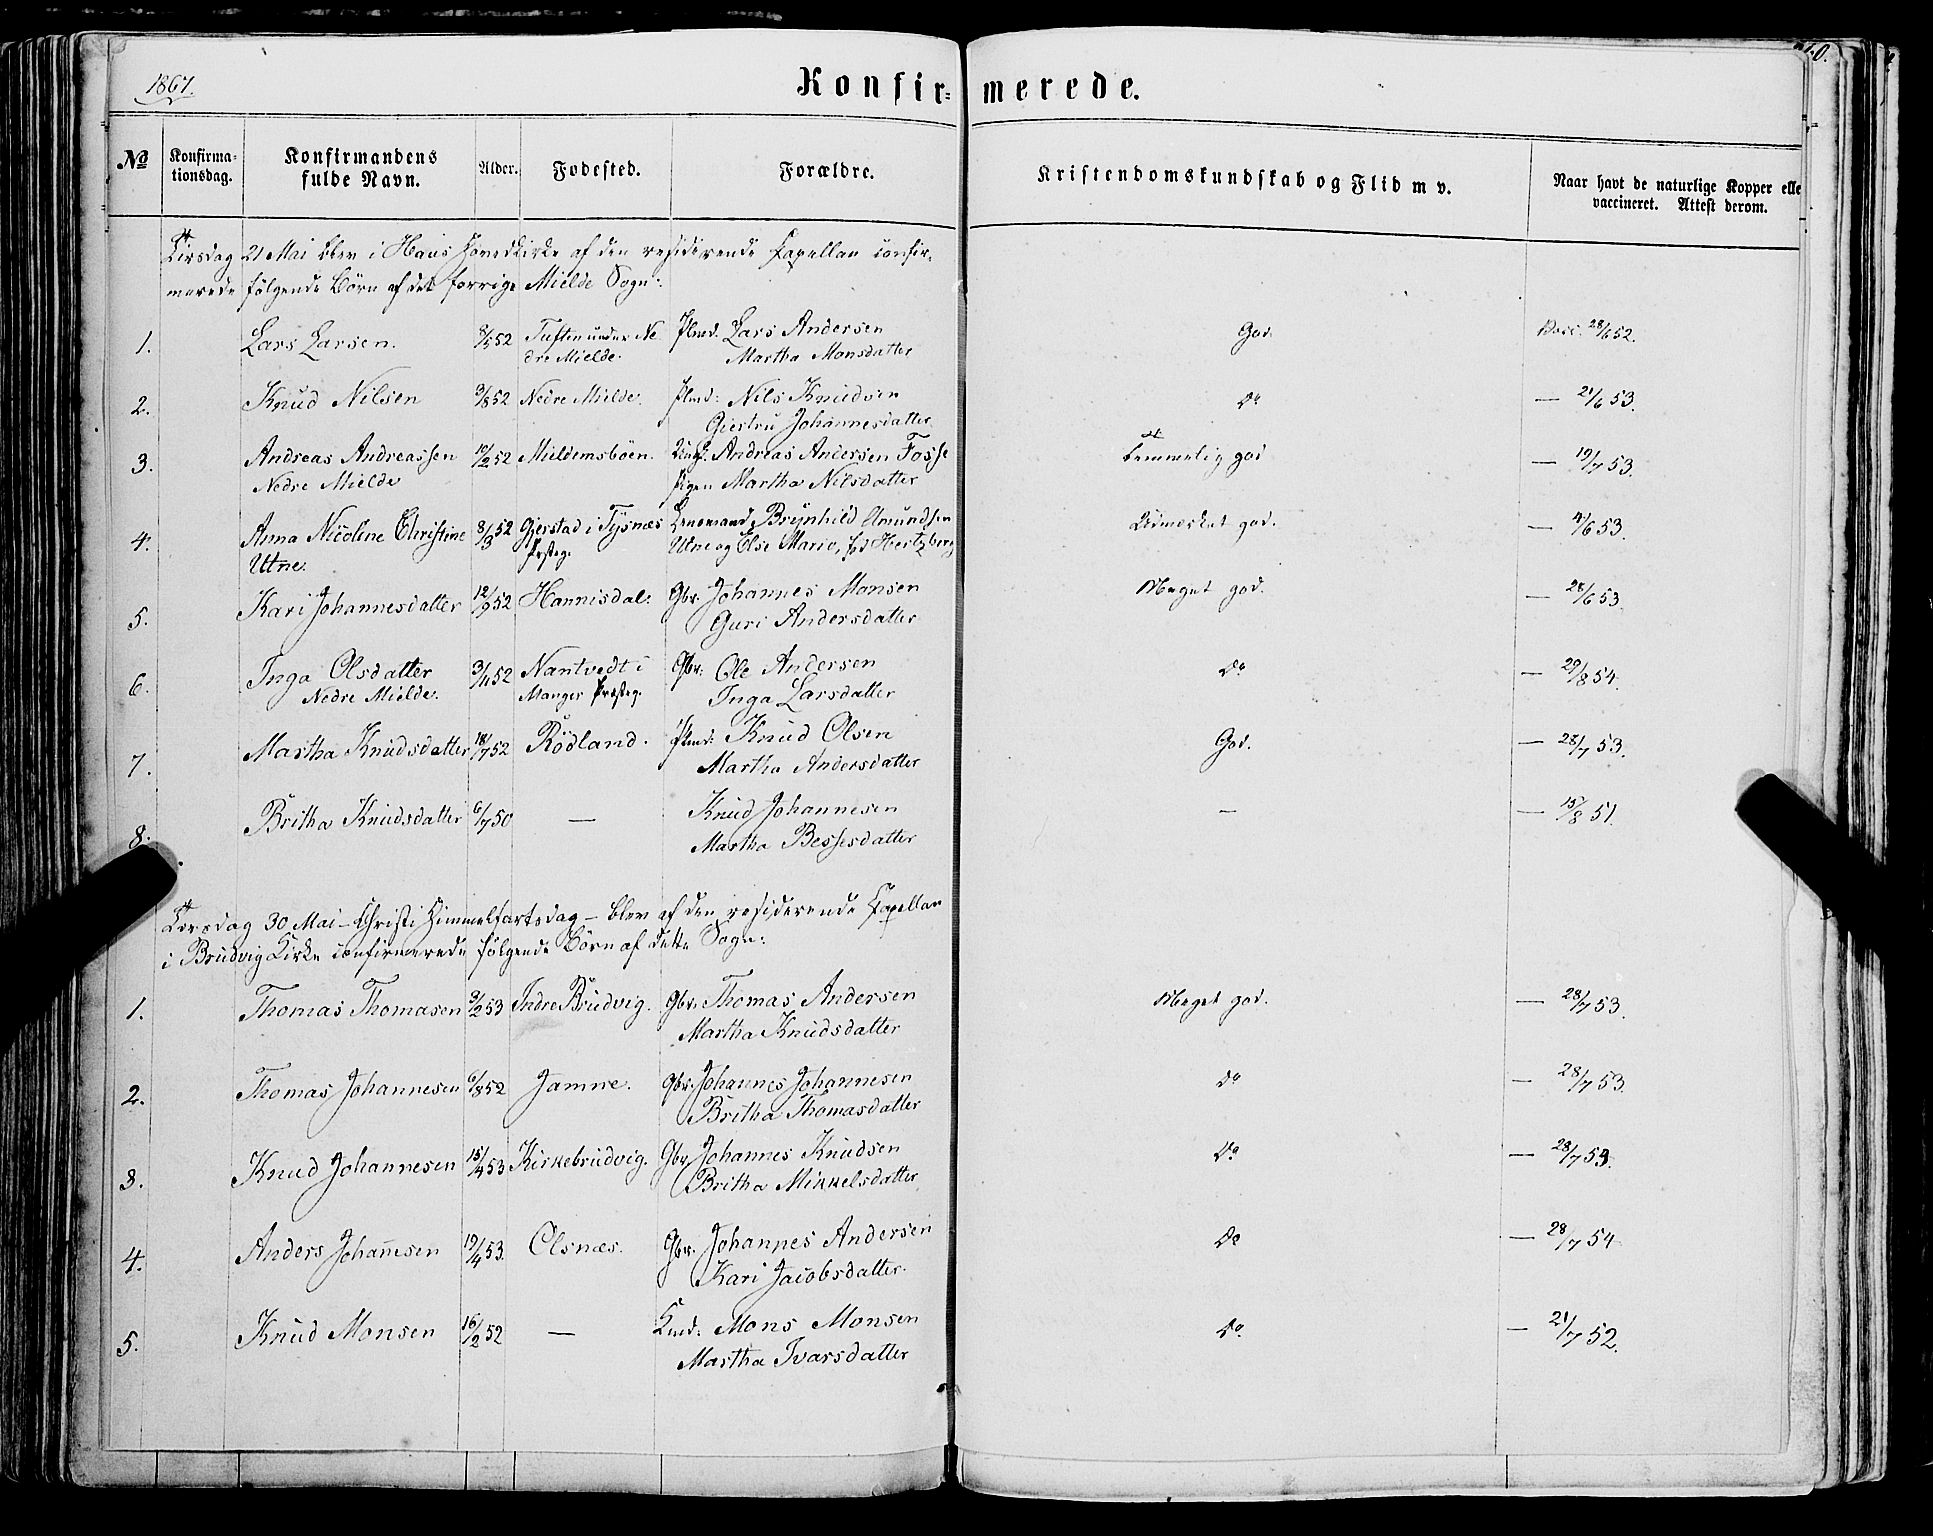 1867.
Konfirmerede.
No
Konfirmationsdag.
Konfirmandens fulde Navn.
Alder.
Fødested.
Forældre.
Kristendomskundskab og Flid m v.
Naar havt de naturlige Kopper elle
vaccineret. Attest derom.
Tirsdag 21 Mai blev i Haus Hovedkirke af den residerende Capellan confir-
merede følgende Börn af det forrige Mielde Sogn:
1. Lars Larsen. 8/5 52 Tuften under Ne- Plmd. Lars Andersen God. Vacc. 28/6 52.
dre Mielde. Martha Monsdatter
2. Knud Nilsen 3/8 52 Nedre Mielde. Plmd: Nils Knudsen Do — 21/6 53.
Giertru Johannesdatter
3. Andreas Andreassen 10/2 52 Mieldemsböen. Ungk. Andreas Andersen Fosse Temmelig god — 19/7 53.
Nedre Mielde Pigen Martha Nilsdatter
4. Anna Nicoline Christine 8/3 52 Gjerstad i Tysnæs Lensmand Brynhild Amundsen Udmerket god. — 4/6 53.
Utne. Præsteg. Utne og Else Marie, fød Hertzberg
5. Kari Johannesdatter 12/9 52 Hannisdal. Gbr. Johannes Monsen Meget god. — 28/6 53.
Guri Andersdatter
6. Inga Olsdatter 3/11 52 Nantvedt i Gbr: Ole Andersen Do — 29/8 54.
Nedre Mielde. Manger Præsteg. Inga Larsdatter
7. Martha Knudsdatter 18/7 52 Rödland. Plmd: Knud Olsen God. — 28/7 53.
Martha Andersdatter
8. Britha Knudsdatter 6/7 50 — Knud Johannesen — — 15/8 51.
Martha Bessesdatter
Torsdag 30 Mai – Christi Himmelfartsdag – blev af den residerende Capellan
i Brudvig Kirke confirmerede følgende Börn af dette Sogn:
1. Thomas Thomasen 3/2 53 Indre Brudvig. Gbr: Thomas Andersen Meget god. — 28/7 53.
Martha Knudsdatter
2. Thomas Johannesen 6/8 52 Jamne. Gbr. Johannes Johannesen Do — 28/7 53.
Britha Thomasdatter
3. Knud Johannesen 15/4 53 Kirkebrudvig. Gbr Johannes Knudsen Do — 28/7 53.
Britha Mikkelsdatter
4. Anders Johanesen 19/4 53. Olsnæs. Gbr. Johannes Andersen Do — 28/7 54
Kari Jacobsdatter.
5. Knud Monsen 16/2 52 — Kmd: Mons Monsen Do — 21/7 52.
Martha Ivarsdatter